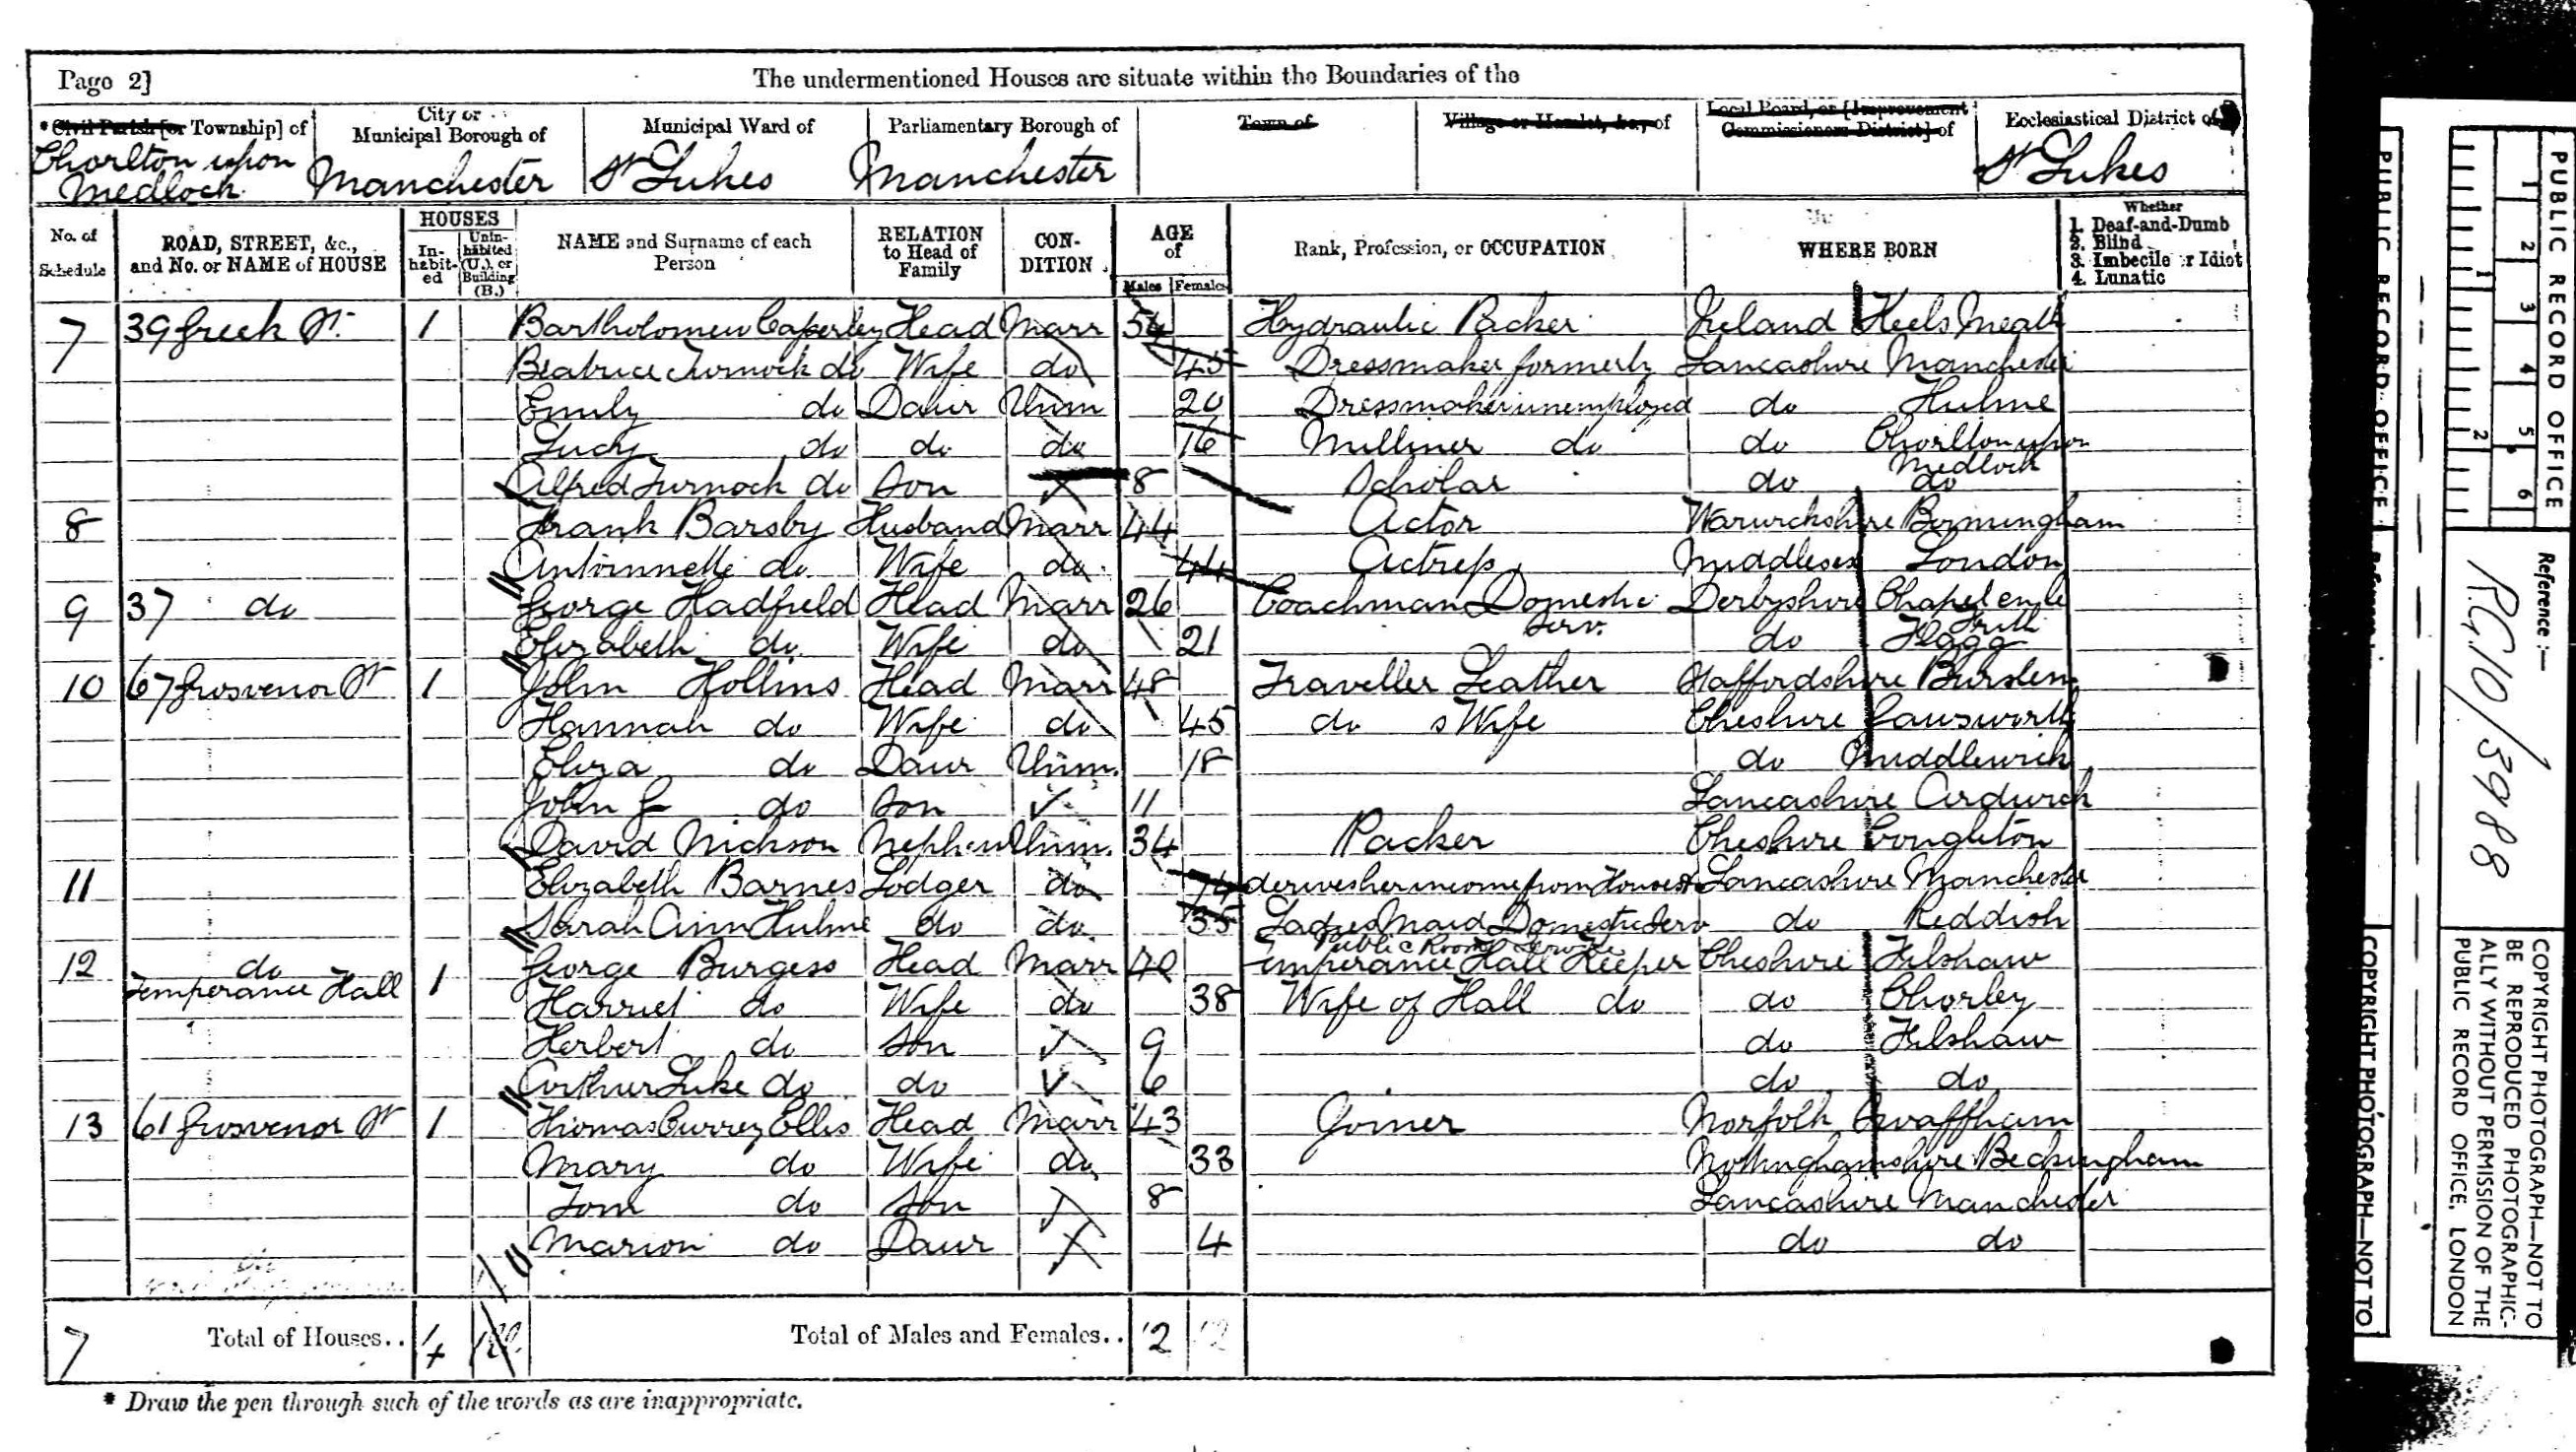 Page 2]
The undermentioned Houses are situate within the Boundaries of the
*Civil Parish [or Township] of
City or Municipal Borough of
Municipal Ward of
Parliamentary Borough of
Town of
Village or Hamlet, &c., of
Local Board, or [Improvement Commissioners District] of
Ecclesiastical District of
Chorlton upon Medlock
Manchester
St Lukes
Manchester
St Lukes
No. of Schedule
ROAD, STREET, &c., and No. or NAME of HOUSE
HOUSES
In-habit-ed
Unin-habited (U.), or Building (B.)
NAME and Surname of each Person
RELATION to Head of Family
CON-DITION
AGE of
Males
Females
Rank, Profession, or OCCUPATION
WHERE BORN
Whether
1. Deaf-and-Dumb
2. Blind
3. Imbecile or Idiot
4. Lunatic
7 39 Greek St 1 Bartholomew Head Marr 54 Hydraulic Packer Ireland Meath
Beatrice Turnock do Wife do 45 Dressmaker formerly Lancashire Manchester
Emily do Daur Unm 20 Dressmaker unemployed do Hulme
Lucy do do do 16 Milliner do do Chorlton upon Medlock
Alfred Turnock do Son 8 Scholar do do
8 Frank Barsby Husband Marr 44 Actor Warwickshire Birmingham
Antoinnette do Wife do 44 Actress Middlesex London
9 37 do George Hadfield Head Marr 26 Coachman Domestic Serv. Derbyshire Chapel en le Frith
Elizabeth do Wife do 21 do Flagg
10 67 Grosvenor St 1 John Hollins Head Marr 48 Traveller Leather Staffordshire Burslem
Hannah do Wife do 45 do s Wife Cheshire Gawsworth
Eliza do Daur Unm. 18 do Middlewich
John G do Son 11 Lancashire Ardwick
David Nickson Nephew Unm. 34 Packer Cheshire Congleton
11 Elizabeth Barnes Lodger do 74 derives her income from Houses Lancashire Manchester
Sarah Ann Hulme do do 35 Ladies Maid Domestic Serv do Reddish
12 do Temperance Hall 1 George Burgess Head Marr 40 Public Room Service Temperance Hall Keeper Cheshire Filshaw
Harriet do Wife do 38 Wife of Hall do do Chorley
Herbert do Son 9 do Filshaw
Arthur Luke do do 6 do do
13 61 Grosvenor St 1 Thomas Currey Ellis Head Marr 43 Joiner Norfolk Swaffham
Mary do Wife do 33 Nottinghamshire Beckingham
Tom do Son 8 Lancashire Manchester
Marion do Daur 4 do do
7 Total of Houses.. 4 Total of Males and Females.. 12 12
* Draw the pen through such of the words as are inappropriate.
PUBLIC RECORD OFFICE
Reference :—
RG10/3988
COPYRIGHT PHOTOGRAPH—NOT TO
BE REPRODUCED PHOTOGRAPHIC-
ALLY WITHOUT PERMISSION OF THE
PUBLIC RECORD OFFICE, LONDON
PUBLIC RECORD OFFICE
COPYRIGHT PHOTOGRAPH—NOT TO